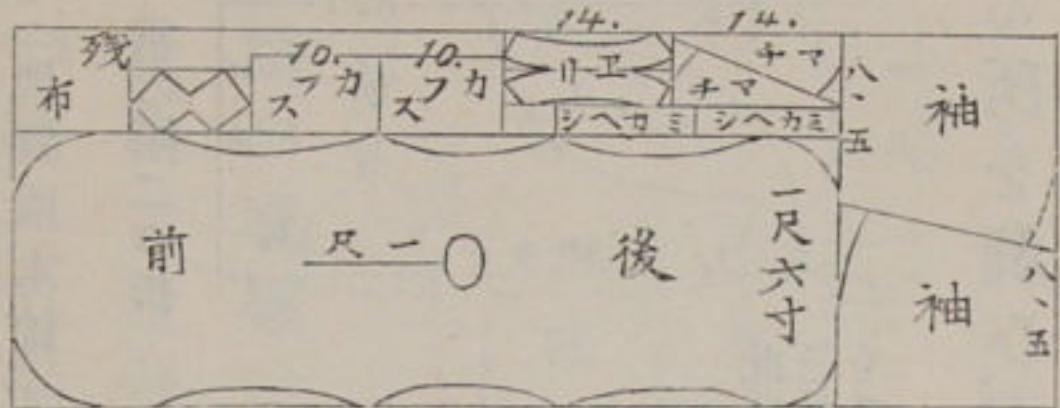 14.
14.
10.
10.
残布
カフス
カフス
ヱリ
マチ
マチ
ミカヘシ
ミカヘシ
八、五
袖
前
一尺
後
一尺六寸
袖
八、五